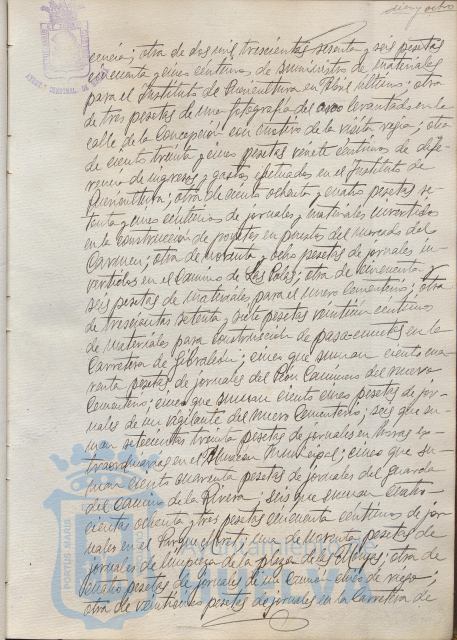 diez y ocho
cuencia; otra de dos mil trescientas sesenta y seis pesetas
cincuenta y cinco céntimos de suministro de materiales
para el Instituto de Puericultura en Abril último; otra
de tres pesetas de una fotografía del arco levantado en la
calle de la Concepción con motivo de la visita regia; otra
de ciento treinta y cinco pesetas veinte céntimos de dife-
rencia de ingresos y gastos efectuados en el Instituto de
Puericultura; otra de ciento ochenta y cuatro pesetas se-
tenta y cinco céntimos de jornales y materiales invertidos
en la construcción de poyetes en puestos del mercado del
Carmen; otra de noventa y ocho pesetas de jornales in-
vertidos en el Camino de Las Palas; otra de cincuenta y
seis pesetas de materiales para el nuevo Cementerio; otra
de trescientas setenta y siete pesetas veintiun céntimos
de materiales para construcción de pasa-cunetas en la
Carretera de Gibraleón; cinco que suman ciento cua-
renta pesetas de jornales del Peon Caminero del nuevo
Cementerio; cinco que suman ciento cinco pesetas de jor-
nales de un vigilante del Nuevo Cementerio; seis que su-
man setecientas treinta pesetas de jornales en horas ex-
traordinarias en el Almacen Municipal; cinco que su-
man ciento cuarenta pesetas de jornales del guarda
del camino de la Rivera; seis que suman cuatro-
cientas ochenta y tres pesetas cincuenta céntimos de jor-
nales en el Parque; otra de noventa pesetas de
jornales de limpieza de la plaza de las Monjas; otra de
cuatro pesetas de jornales de un camion cuba de riego;
otra de veintiocho pesetas de jornales en la Carretera de
PORTUS MARIS
Ayuntamiento de
HUELVA